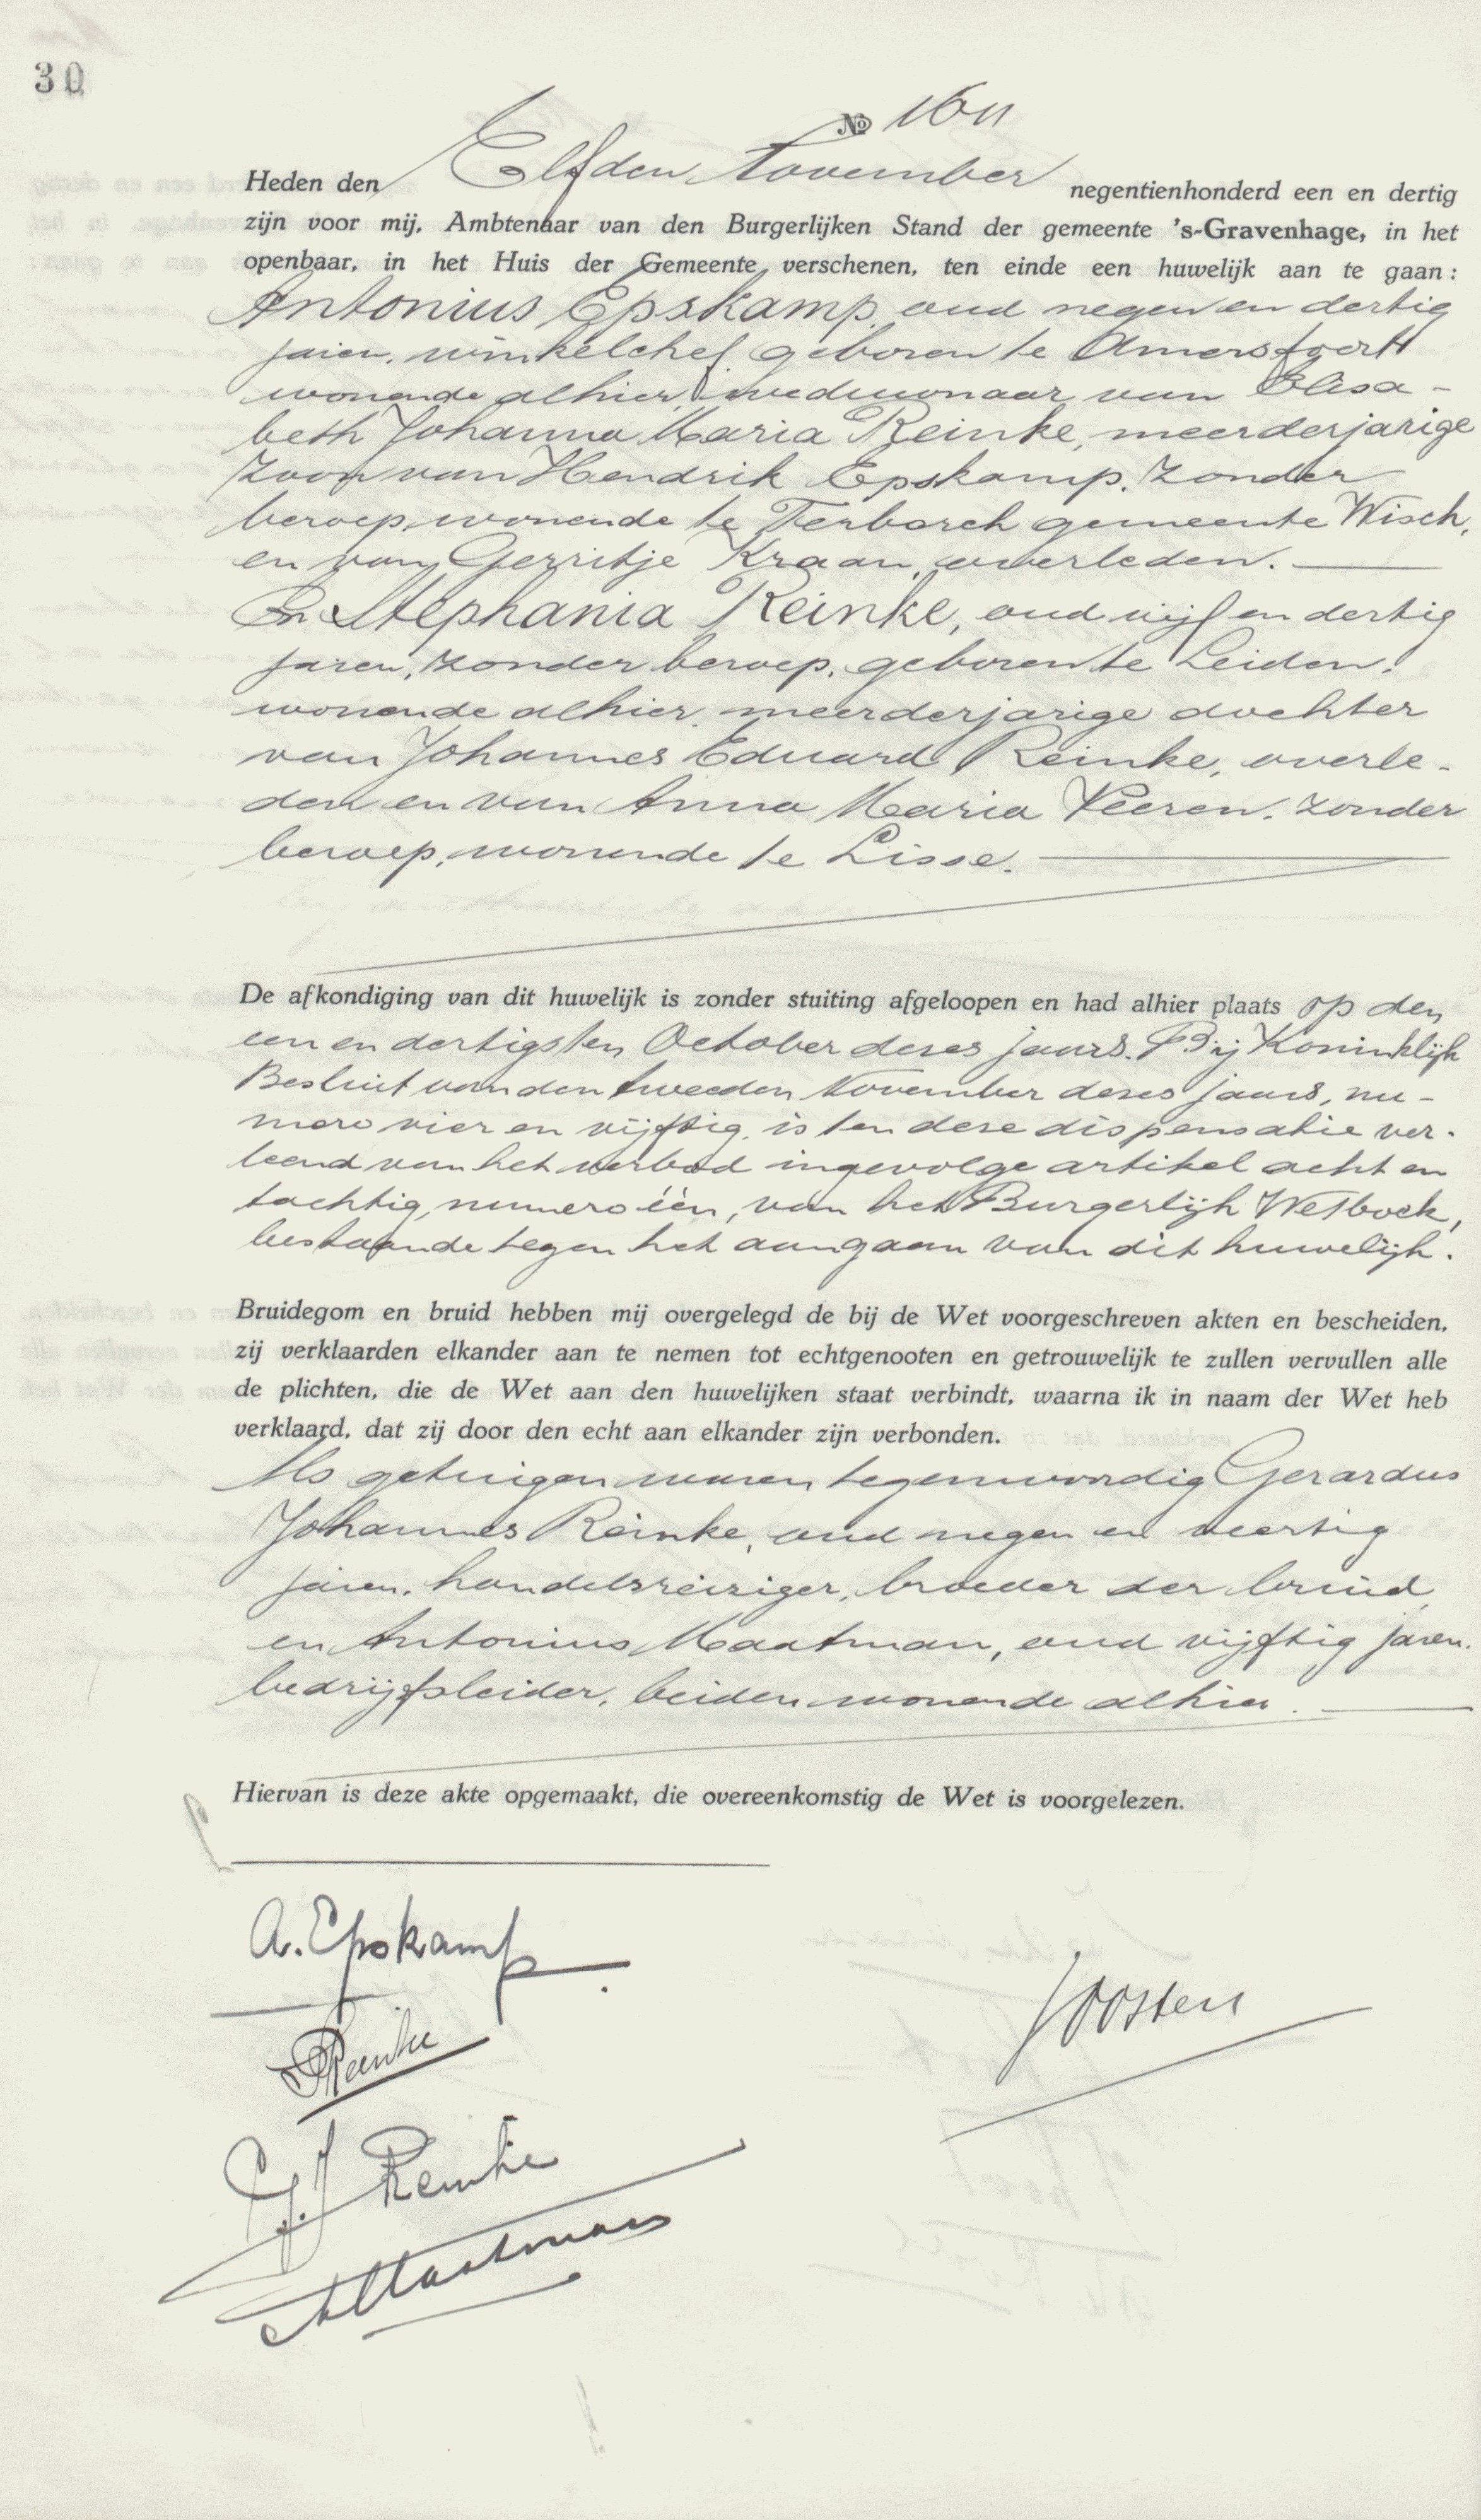 30
No 1611
Heden den Elfden November negentienhonderd een en dertig
zijn voor mij, Ambtenaar van den Burgerlijken Stand der gemeente 's-Gravenhage, in het
openbaar, in het Huis der Gemeente verschenen, ten einde een huwelijk aan te gaan:
Antonius Epskamp, oud negen en dertig
jaren, winkelchef, geboren te Amersfoort
wonende alhier, weduwnaar van Elisa-
beth Johanna Maria Reinke, meerderjarige
zoon van Hendrik Epskamp, zonder
beroep, wonende te Terborch gemeente Wisch,
en van Gerritje Kraan, overleden.
En Stephania Reinke, oud vijf en dertig
jaren, zonder beroep, geboren te Leiden,
wonende alhier, meerderjarige dochter
van Johannes Eduard Reinke, overle-
den en van Anna Maria Peeren, zonder
beroep, wonende te Lisse.
De afkondiging van dit huwelijk is zonder stuiting afgeloopen en had alhier plaats op den
een en dertigsten October dezes jaars. Bij Koninklijk
Besluit van den tweeden November dezes jaars, nu-
mero vier en vijftig, is ten deze dispensatie ver-
leend van het verbod ingevolge artikel acht en
tachtig, numero één, van het Burgerlijk Wetboek,
bestaande tegen het aangaan van dit huwelijk.
Bruidegom en bruid hebben mij overgelegd de bij de Wet voorgeschreven akten en bescheiden,
zij verklaarden elkander aan te nemen tot echtgenooten en getrouwelijk te zullen vervullen alle
de plichten, die de Wet aan den huwelijken staat verbindt, waarna ik in naam der Wet heb
verklaard, dat zij door den echt aan elkander zijn verbonden.
Als getuigen waren tegenwoordig Gerardus
Johannes Reinke, oud negen en veertig
jaren, handelsreiziger, broeder der bruid,
en Antonius Maatman, oud vijftig jaren,
bedrijfsleider, beiden wonende alhier.
Hiervan is deze akte opgemaakt, die overeenkomstig de Wet is voorgelezen.
A. Epskamp
Joosten
S Reinke
G. J Reinke
A Maatman